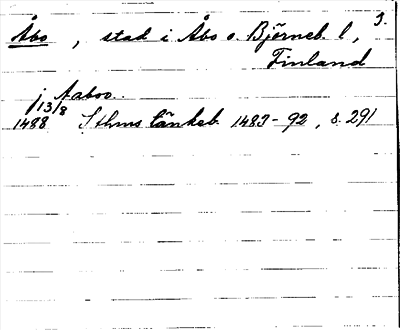 3.
Åbo, stad i Åbo o. Björneb. l,
Finland
j Aaboo.
13/8
1488 Sthms tänkeb. 1483-92, s. 291